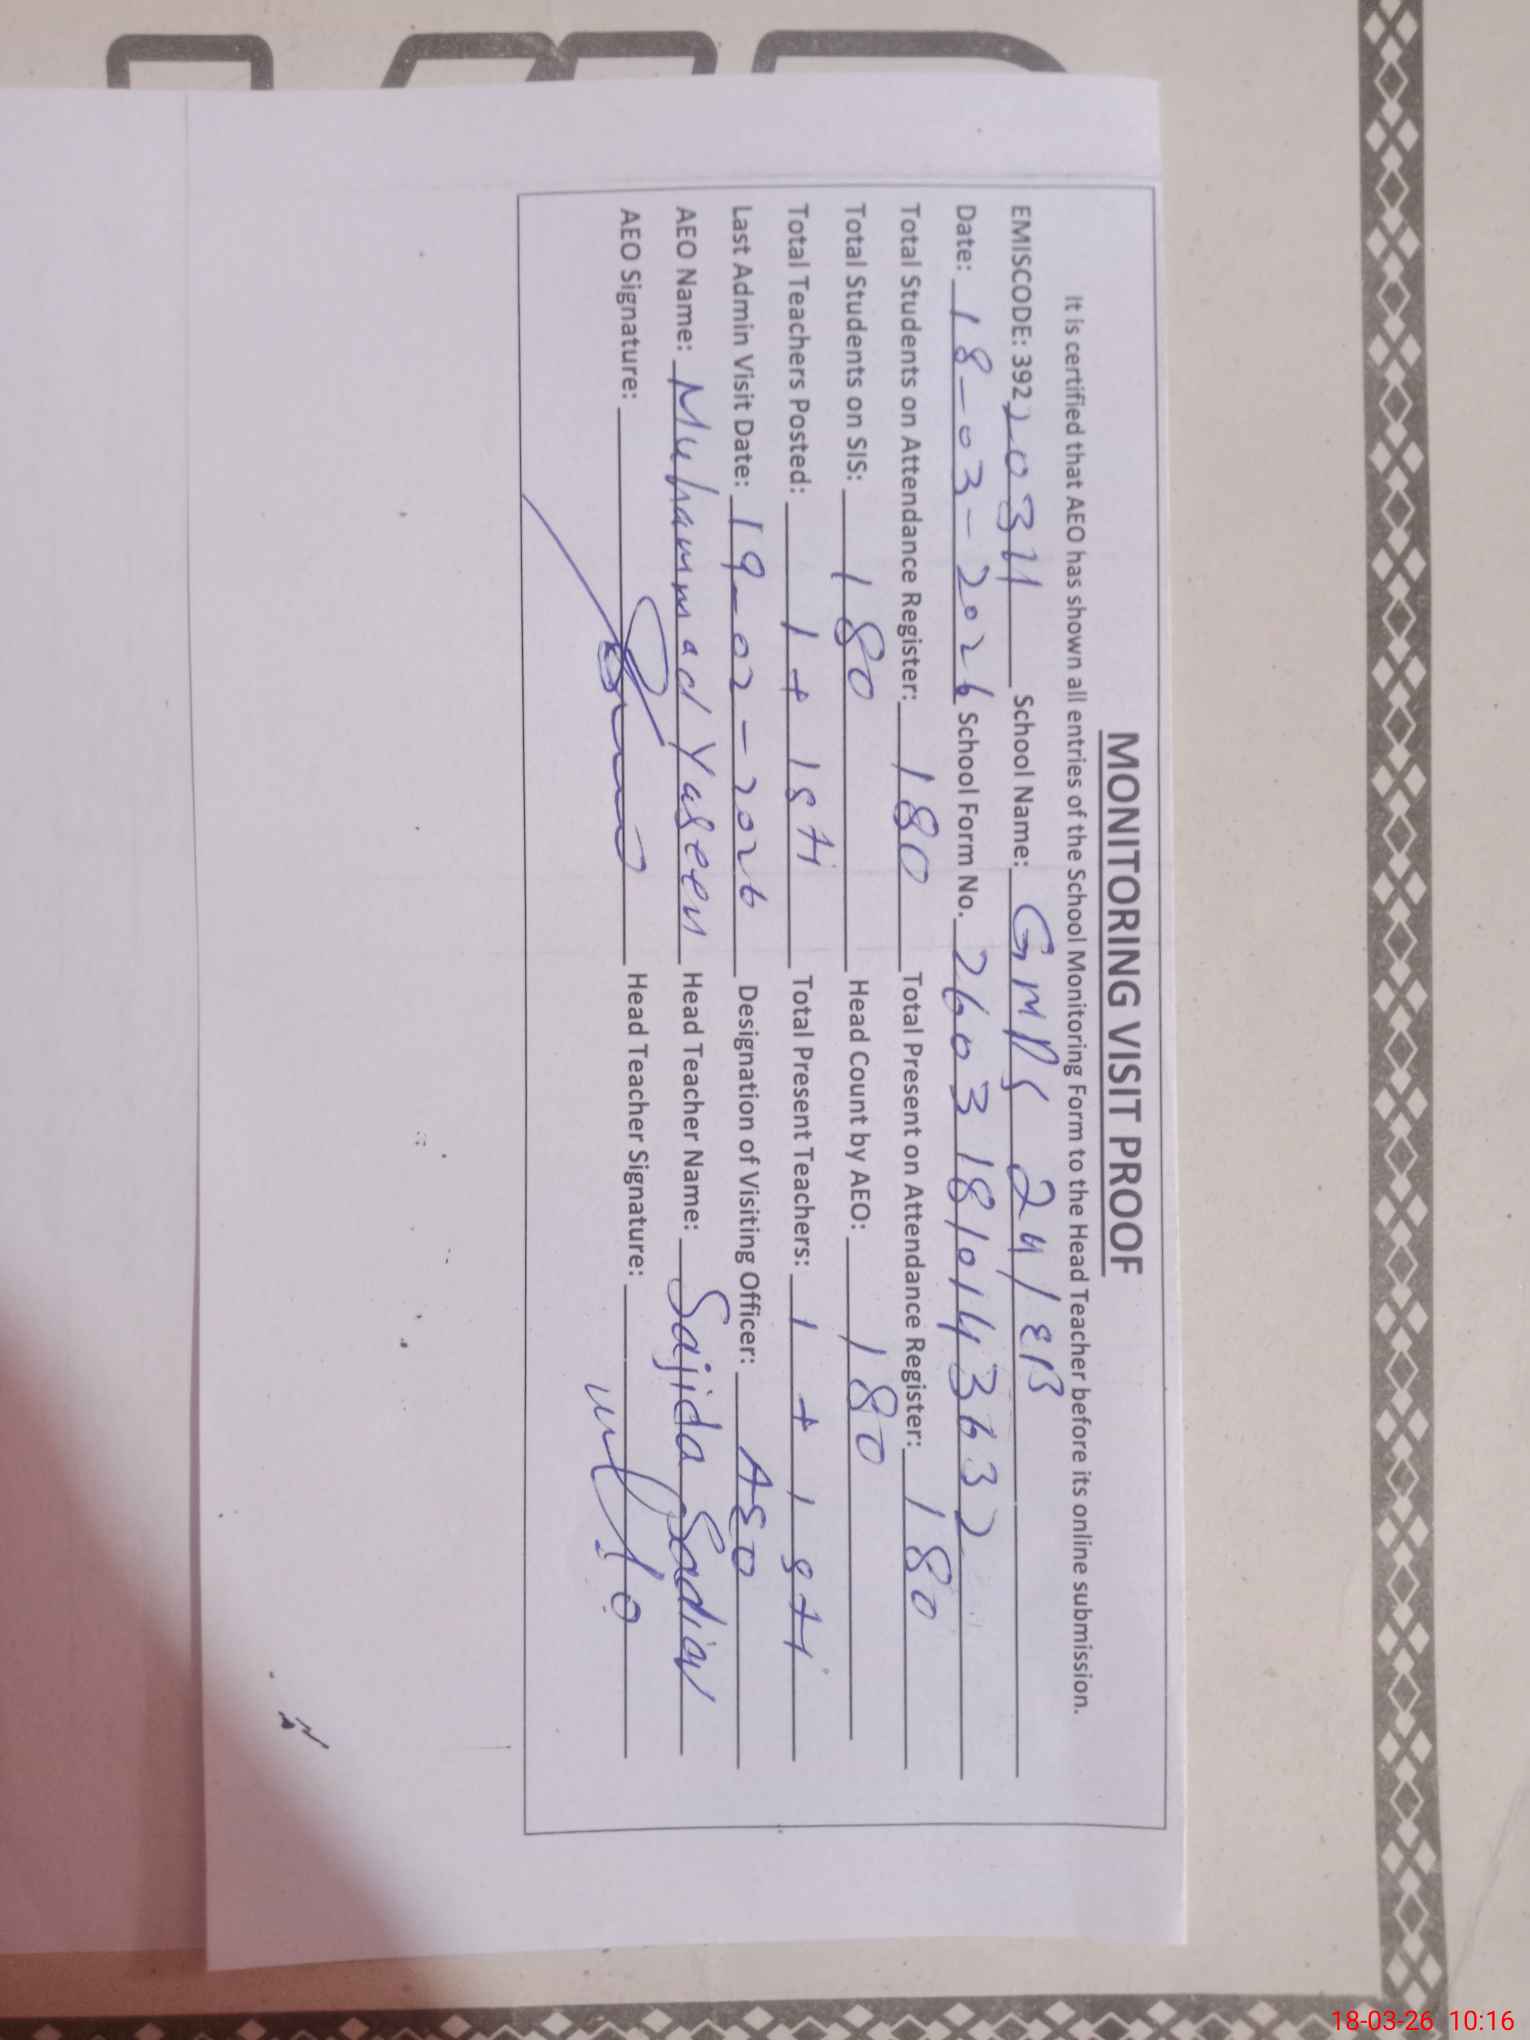 MONITORING VISIT PROOF
It is certified that AEO has shown all entries of the School Monitoring Form to the Head Teacher before its online submission.
EMISCODE: 392 School Name: GMPS 24/EB
Date: 18-03-2026 School Form No. 260318101436 32
Total Students on Attendance Register: 180 Total Present on Attendance Register: 180
Total Students on SIS: 180 Head Count by AEO: 180
Total Teachers Posted: 1 + 1 sti Total Present Teachers: 1 + 1 sti
Last Admin Visit Date: 19-02-2026 Designation of Visiting Officer: AEO
AEO Name: Muhammad Yaseen Head Teacher Name: Sajida
AEO Signature: Head Teacher Signature:
18-03-26 10:16